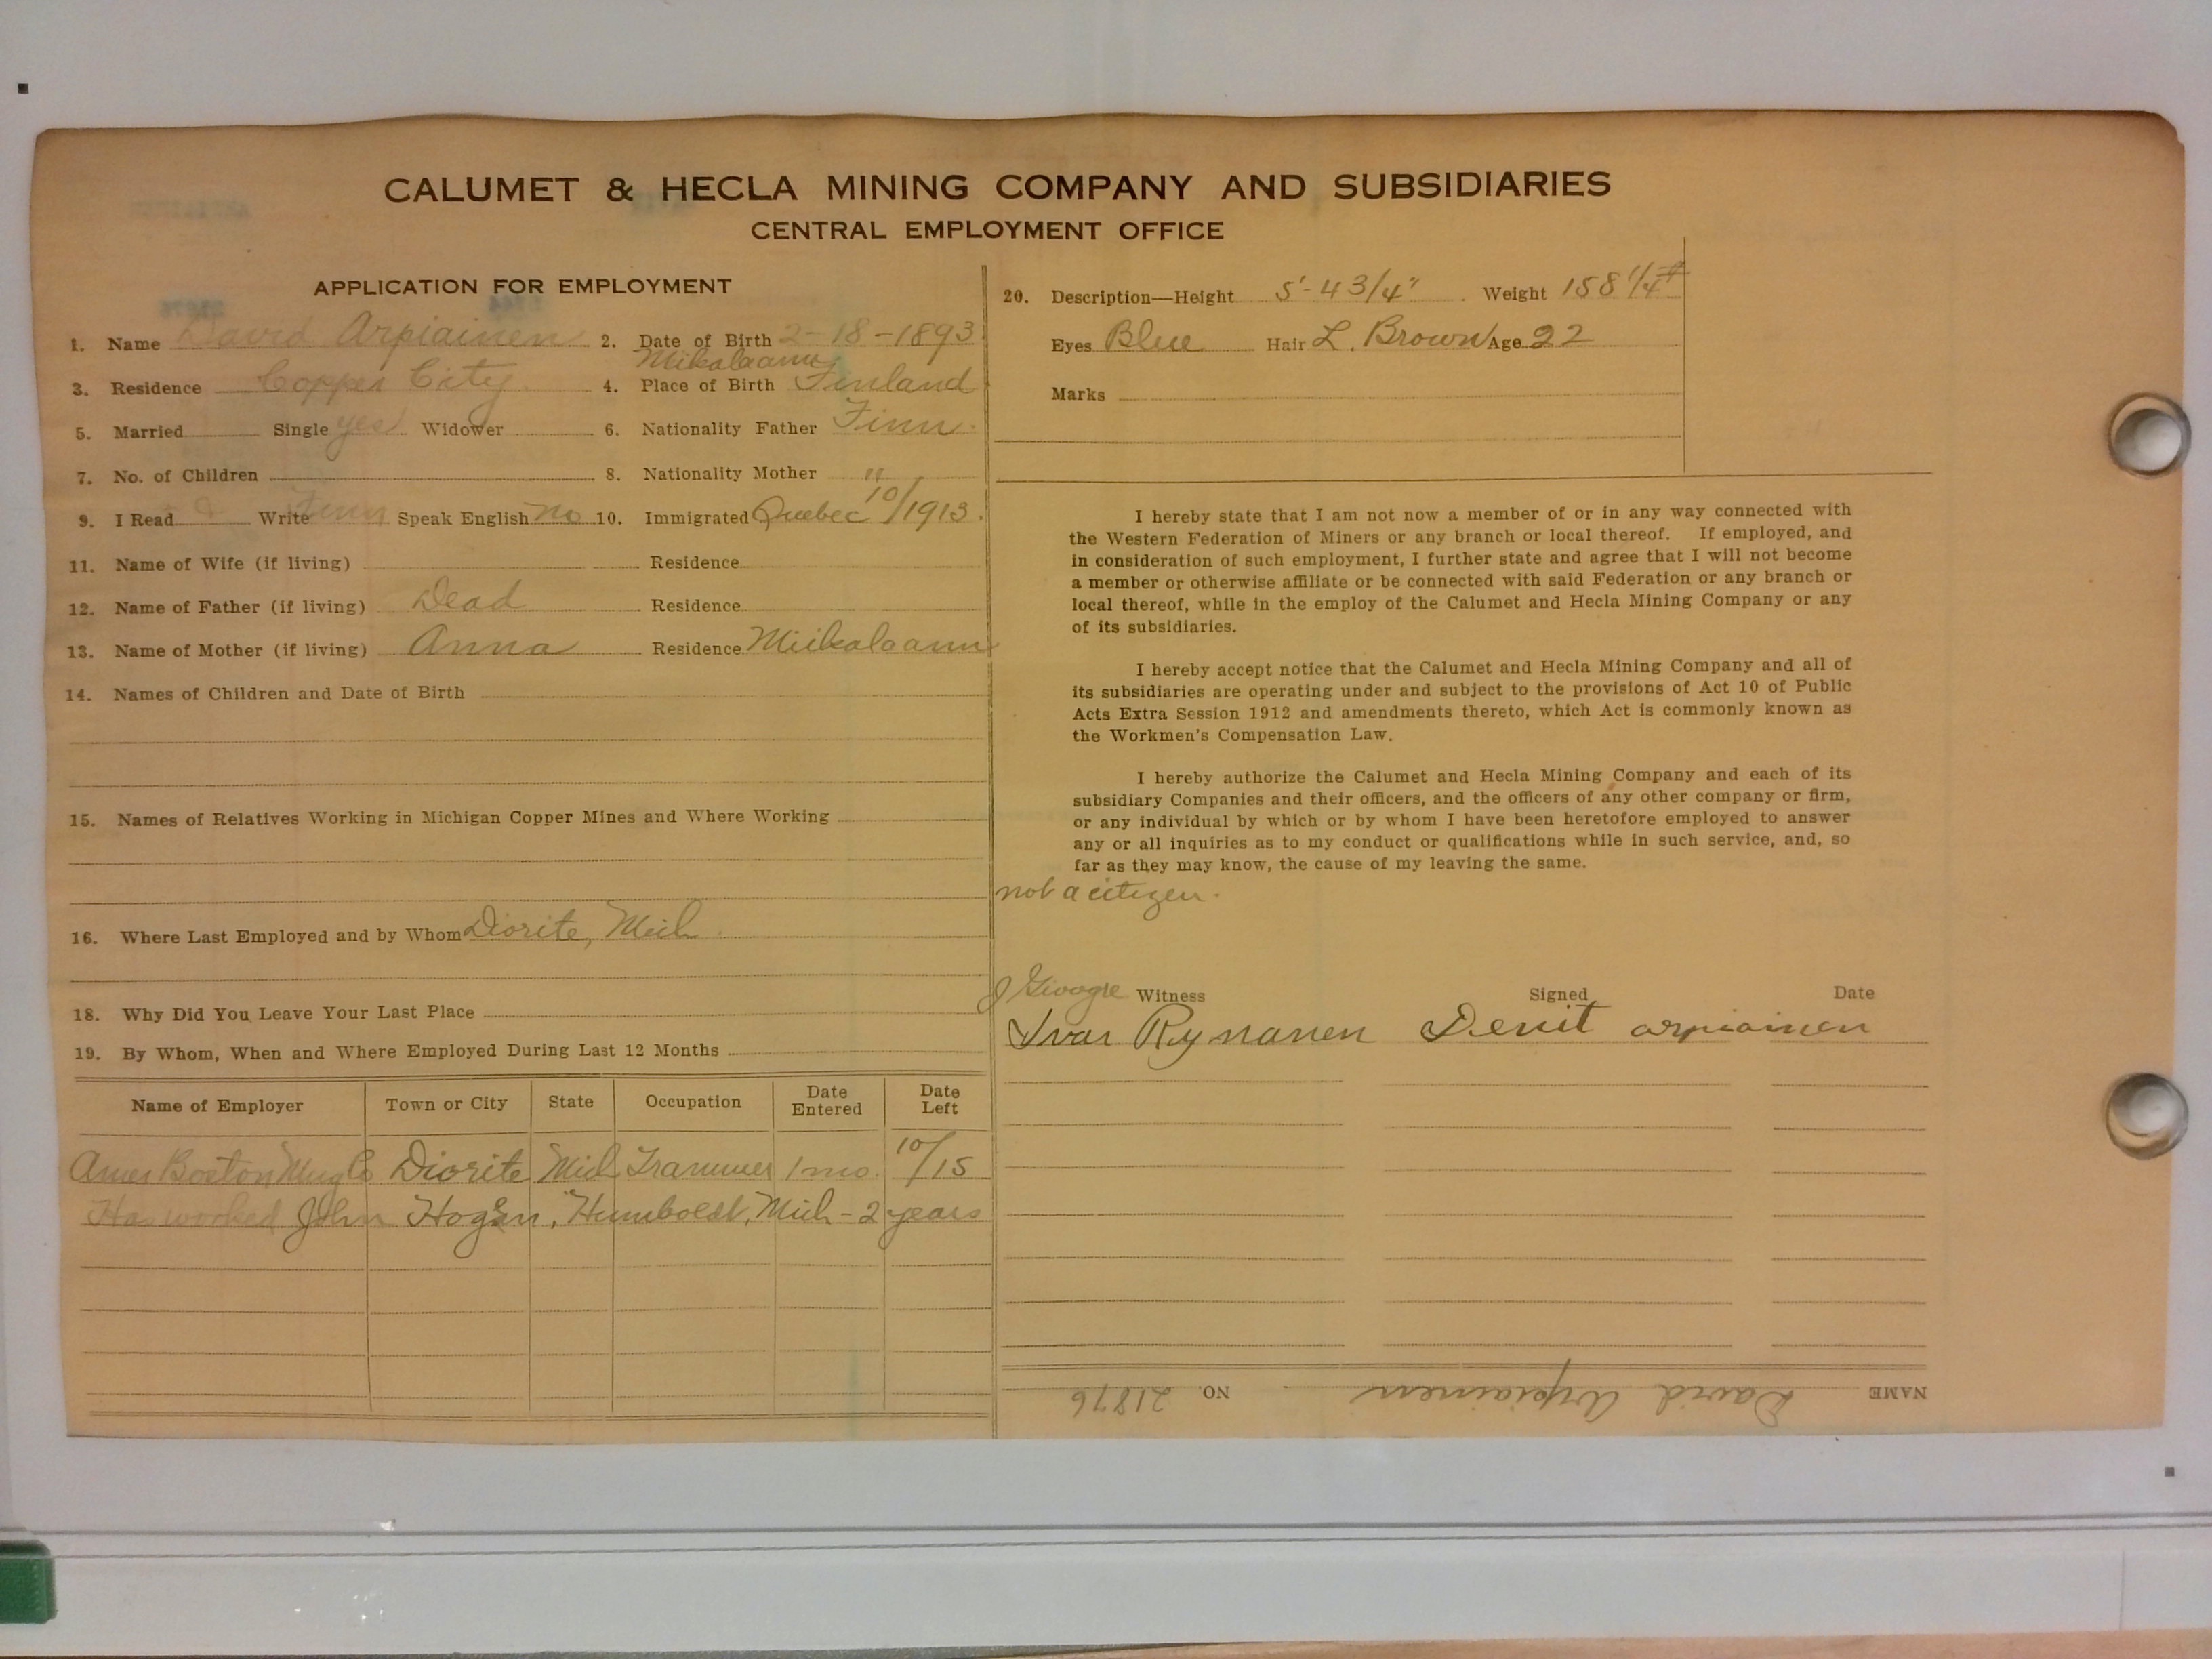 CALUMET & HECLA MINING COMPANY AND SUBSIDIARIES
CENTRAL EMPLOYMENT OFFICE
APPLICATION FOR EMPLOYMENT
1. Name David Arpiainen 2. Date of Birth 2-18-1893
3. Residence Copper City 4. Place of Birth Mikalaanu Finland
5. Married Single yes Widower 6. Nationality Father Finn
7. No. of Children 8. Nationality Mother "
9. I Read & Write Finn Speak English No 10. Immigrated Quebec 10/1913.
11. Name of Wife (if living) Residence
12. Name of Father (if living) Dead Residence
13. Name of Mother (if living) Anna Residence Miikalaanu
14. Names of Children and Date of Birth
15. Names of Relatives Working in Michigan Copper Mines and Where Working
16. Where Last Employed and by Whom Diorite, Mich
18. Why Did You Leave Your Last Place
19. By Whom, When and Where Employed During Last 12 Months
Name of Employer Town or City State Occupation Date Entered Date Left
Amer Boston Mng Co Diorite Mich Trammer 1 mo. 10/15
Has worked John Hogan, Humboldt, Mich - 2 years
20. Description—Height 5'-4 3/4" Weight 158 1/4#
Eyes Blue Hair L. Brown Age 22
Marks
I hereby state that I am not now a member of or in any way connected with
the Western Federation of Miners or any branch or local thereof. If employed, and
in consideration of such employment, I further state and agree that I will not become
a member or otherwise affiliate or be connected with said Federation or any branch or
local thereof, while in the employ of the Calumet and Hecla Mining Company or any
of its subsidiaries.
I hereby accept notice that the Calumet and Hecla Mining Company and all of
its subsidiaries are operating under and subject to the provisions of Act 10 of Public
Acts Extra Session 1912 and amendments thereto, which Act is commonly known as
the Workmen's Compensation Law.
I hereby authorize the Calumet and Hecla Mining Company and each of its
subsidiary Companies and their officers, and the officers of any other company or firm,
or any individual by which or by whom I have been heretofore employed to answer
any or all inquiries as to my conduct or qualifications while in such service, and, so
far as they may know, the cause of my leaving the same.
not a citizen.
Witness Signed Date
Ivar Rynanen Devit arpiainen
NAME David Arpiainen NO. 21876